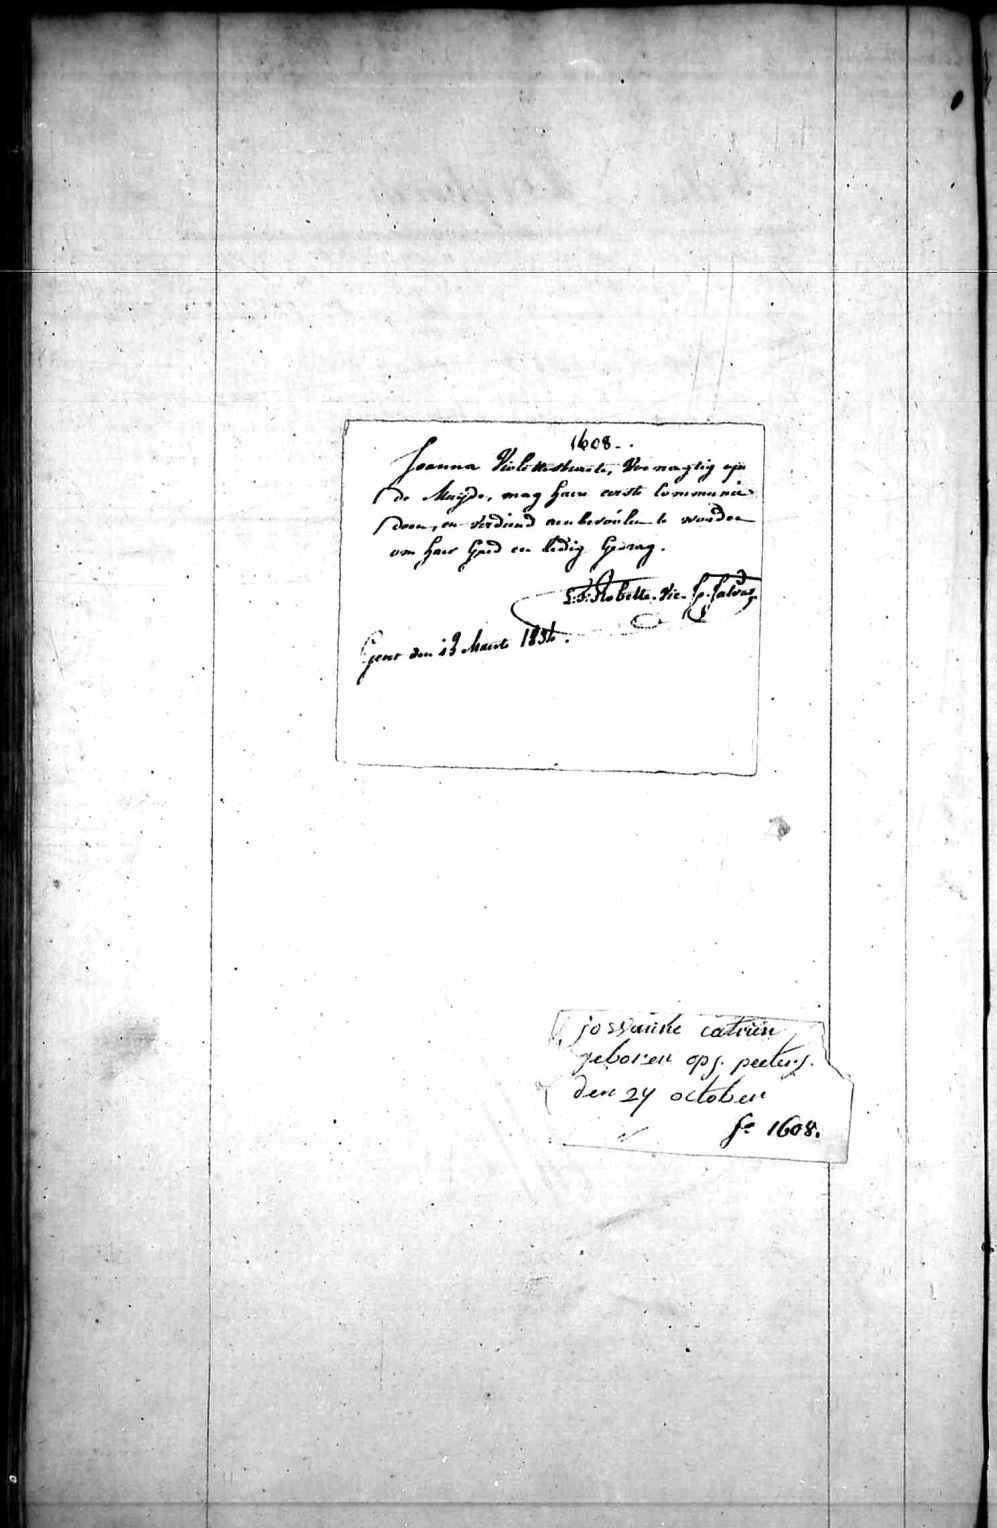 1608.
Joanna Violettestraate, Vernagtig op
de Muyde, mag haere eerste Communie
doen, en verdiend aenbevoúlen te worden
om haer Goed en Zedig Gedrag.
Robette. Vic. S. Salvas
Gent den 13 Maerte 1834.
jossanne catrien
geboren op s. peeters.
den 24 october
f° 1608.